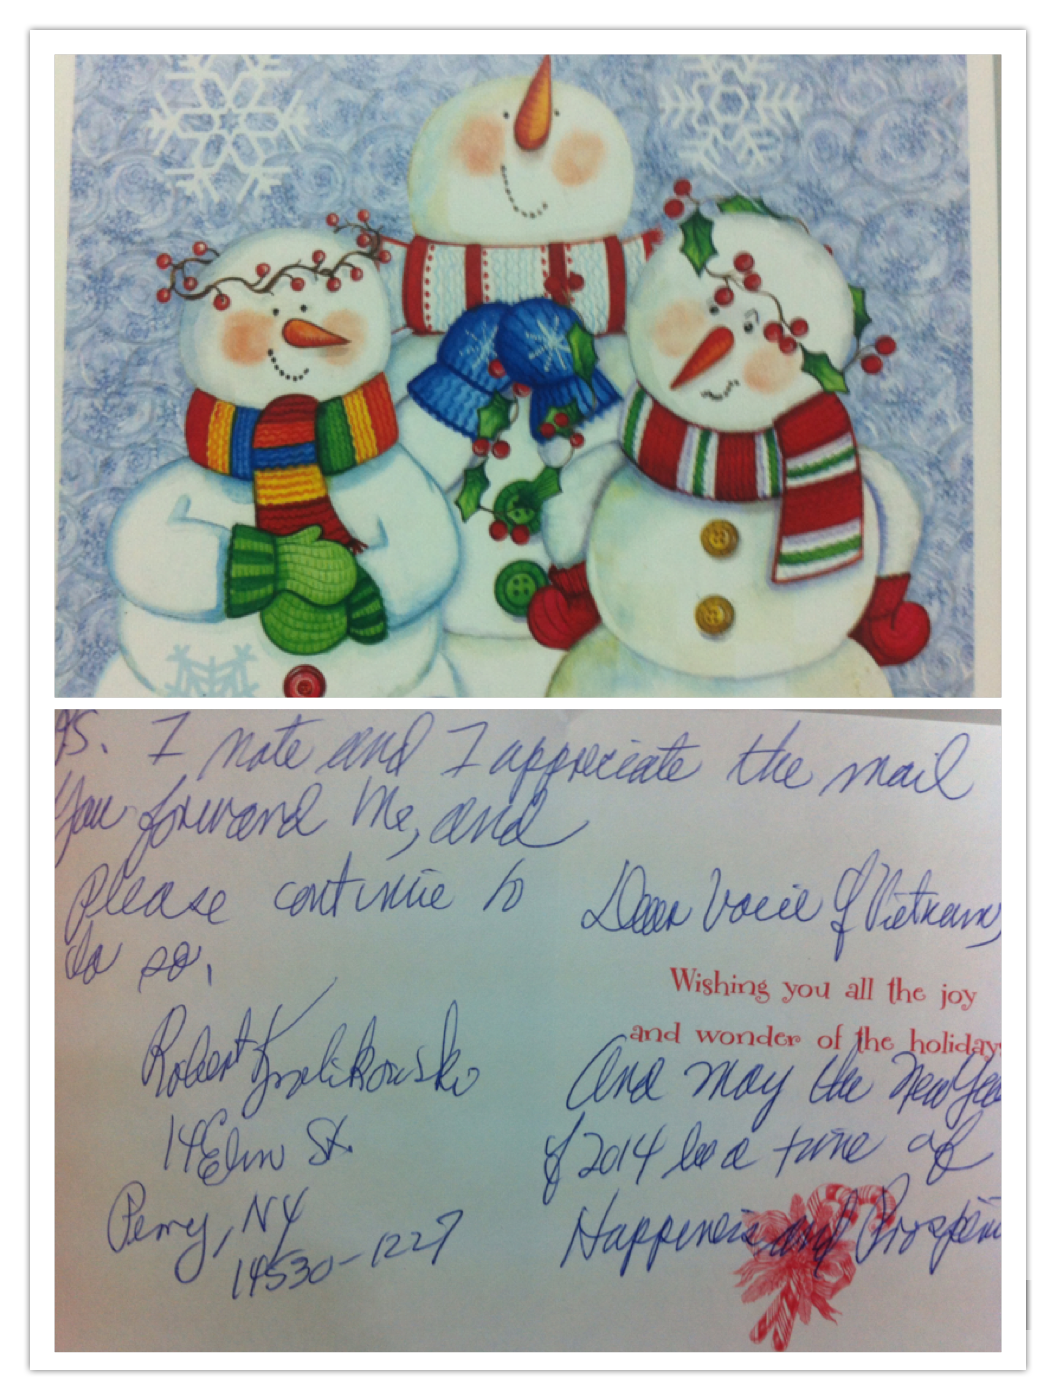 PS. I note and I appreciate the mail
you forward me, and
please continue to
do so.
Robert
14 Elm St.
Perry, NY
14530-1227
Dear Voice of Vietnam,
Wishing you all the joy
and wonder of the holiday
And may the New Yea
of 2014 be a time of
Happiness and Prosperi